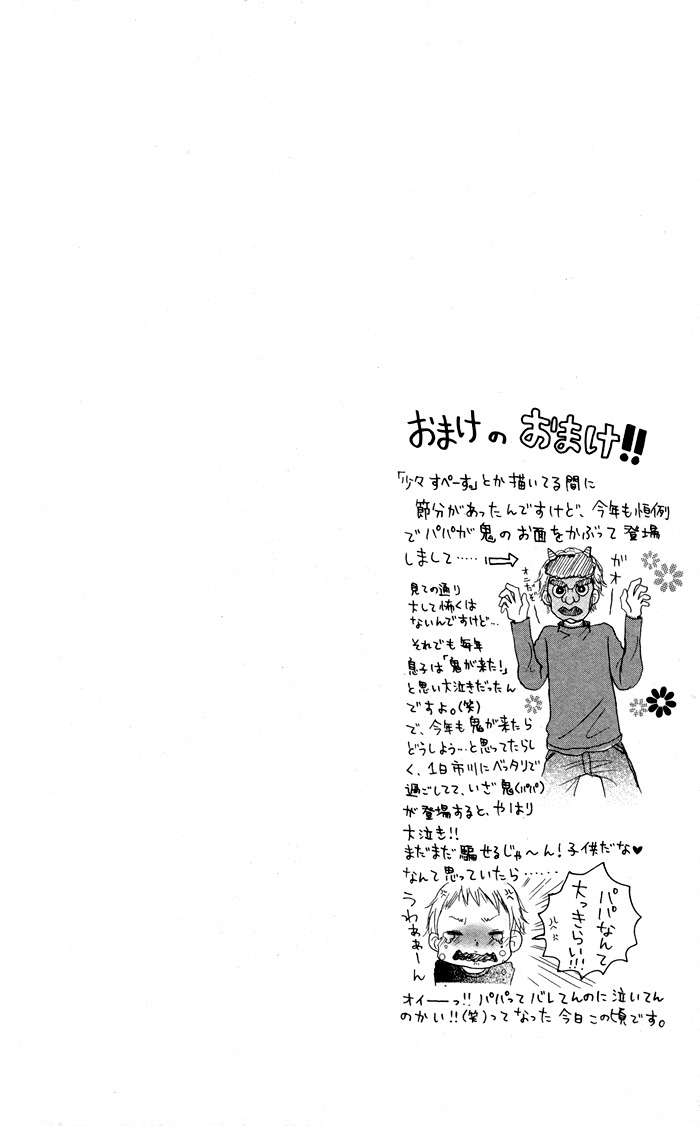 おまけのおまけ!!
「少々すぺーす。」とか描いてる間に
節分があったんですけど、今年も恒例
でパパが鬼のお面をかぶって登場
しまして……⇨
オニだぞ
ガオ
見ての通り
大して怖くは
ないんですけど…
それでも毎年
息子は「鬼が来た!」
と思い大泣きだったん
ですよ。(笑)
で、今年も鬼が来たら
どうしよう…と思ってたらし
く、1日市川にベッタリで
過ごしてて、いざ鬼(パパ)
が登場すると、やはり
大泣き!!
まだまだ騙せるじゃ〜ん!子供だな♥
なんて思っていたら……
パパなんて
大っきらい!!!
うわぁぁーん
オイーっ!!パパってバレてんのに泣いてん
のかい!!(笑)ってなった今日この頃です。